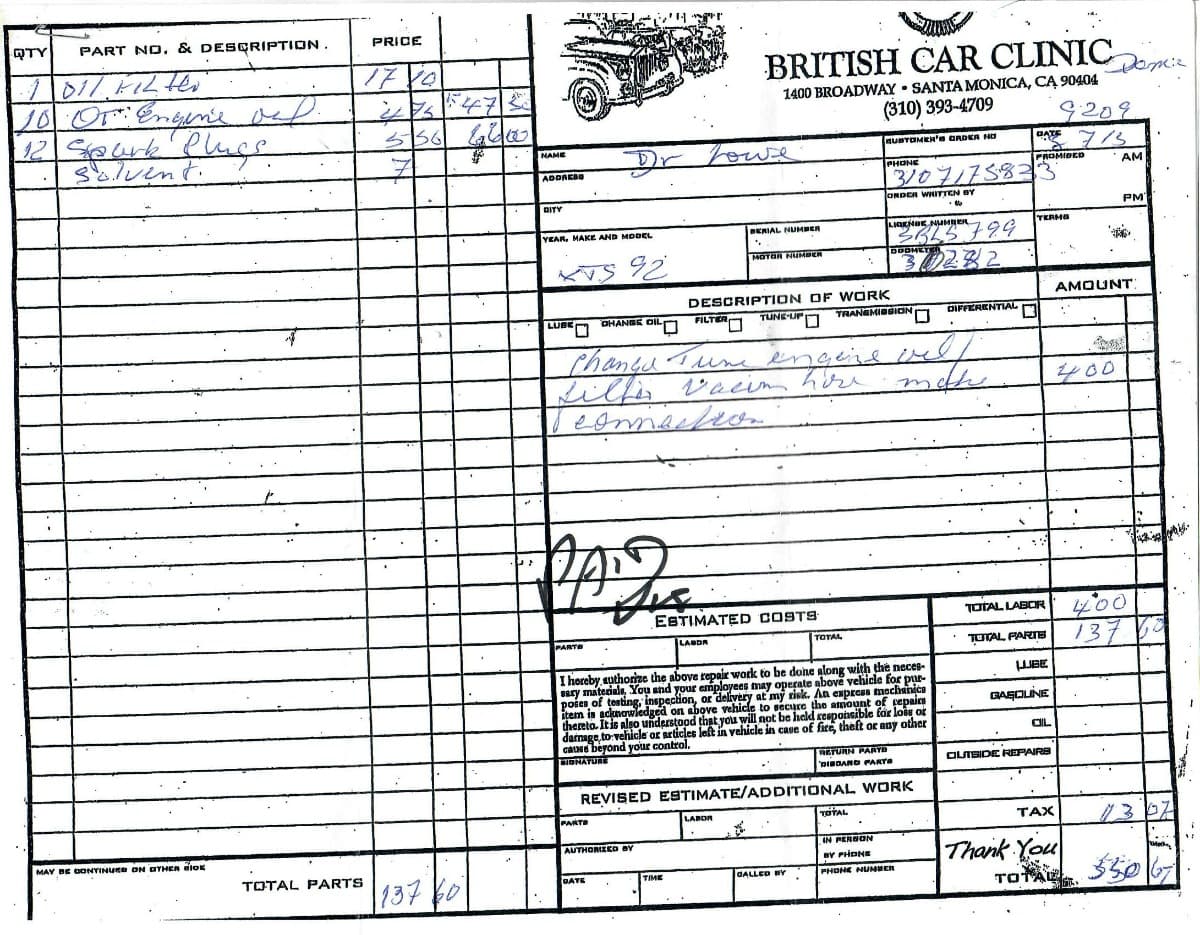 QTY PART NO. & DESCRIPTION. PRICE
1 Oil FILter 17 10
10 QT Engine oil 4 75 47 50
12 Spark Plugs 5 50 66 00
Solvent. 7
MAY BE CONTINUED ON OTHER SIDE
TOTAL PARTS 137 60
BRITISH CAR CLINIC
1400 BROADWAY • SANTA MONICA, CA 90404
(310) 393-4709
9209
CUSTOMER'S ORDER NO DATE
NAME Dr Lowe
PHONE 3107175823 PROMISED AM
ADDRESS
ORDER WRITTEN BY PM
CITY
LICENSE NUMBER TERMS
YEAR, MAKE AND MODEL SERIAL NUMBER
92 MOTOR NUMBER ODOMETER
DESCRIPTION OF WORK AMOUNT
LUBE CHANGE OIL FILTER TUNE-UP TRANSMISSION DIFFERENTIAL
Change Tune engine oil
filter Vacum hose make 400
connection
PAID
ESTIMATED COSTS
PARTS LABOR TOTAL
I hereby authorize the above repair work to be done along with the neces-
sary materials. You and your employees may operate above vehicle for pur-
poses of testing, inspection, or delivery at my risk. An express mechanics
item is acknowledged on above vehicle to secure the amount of repairs
thereto. It is also understood that you will not be held responsible for loss or
damage to vehicle or articles left in vehicle in case of fire, theft or any other
cause beyond your control.
SIGNATURE RETURN PARTS
DISCARD PARTS
REVISED ESTIMATE/ADDITIONAL WORK
PARTS LABOR TOTAL
AUTHORIZED BY IN PERSON
BY PHONE
DATE TIME CALLED BY PHONE NUMBER
TOTAL LABOR 400
TOTAL PARTS 137 60
LUBE
GASOLINE
OIL
OUTSIDE REPAIRS
TAX 13 07
Thank You
TOTAL 550 67